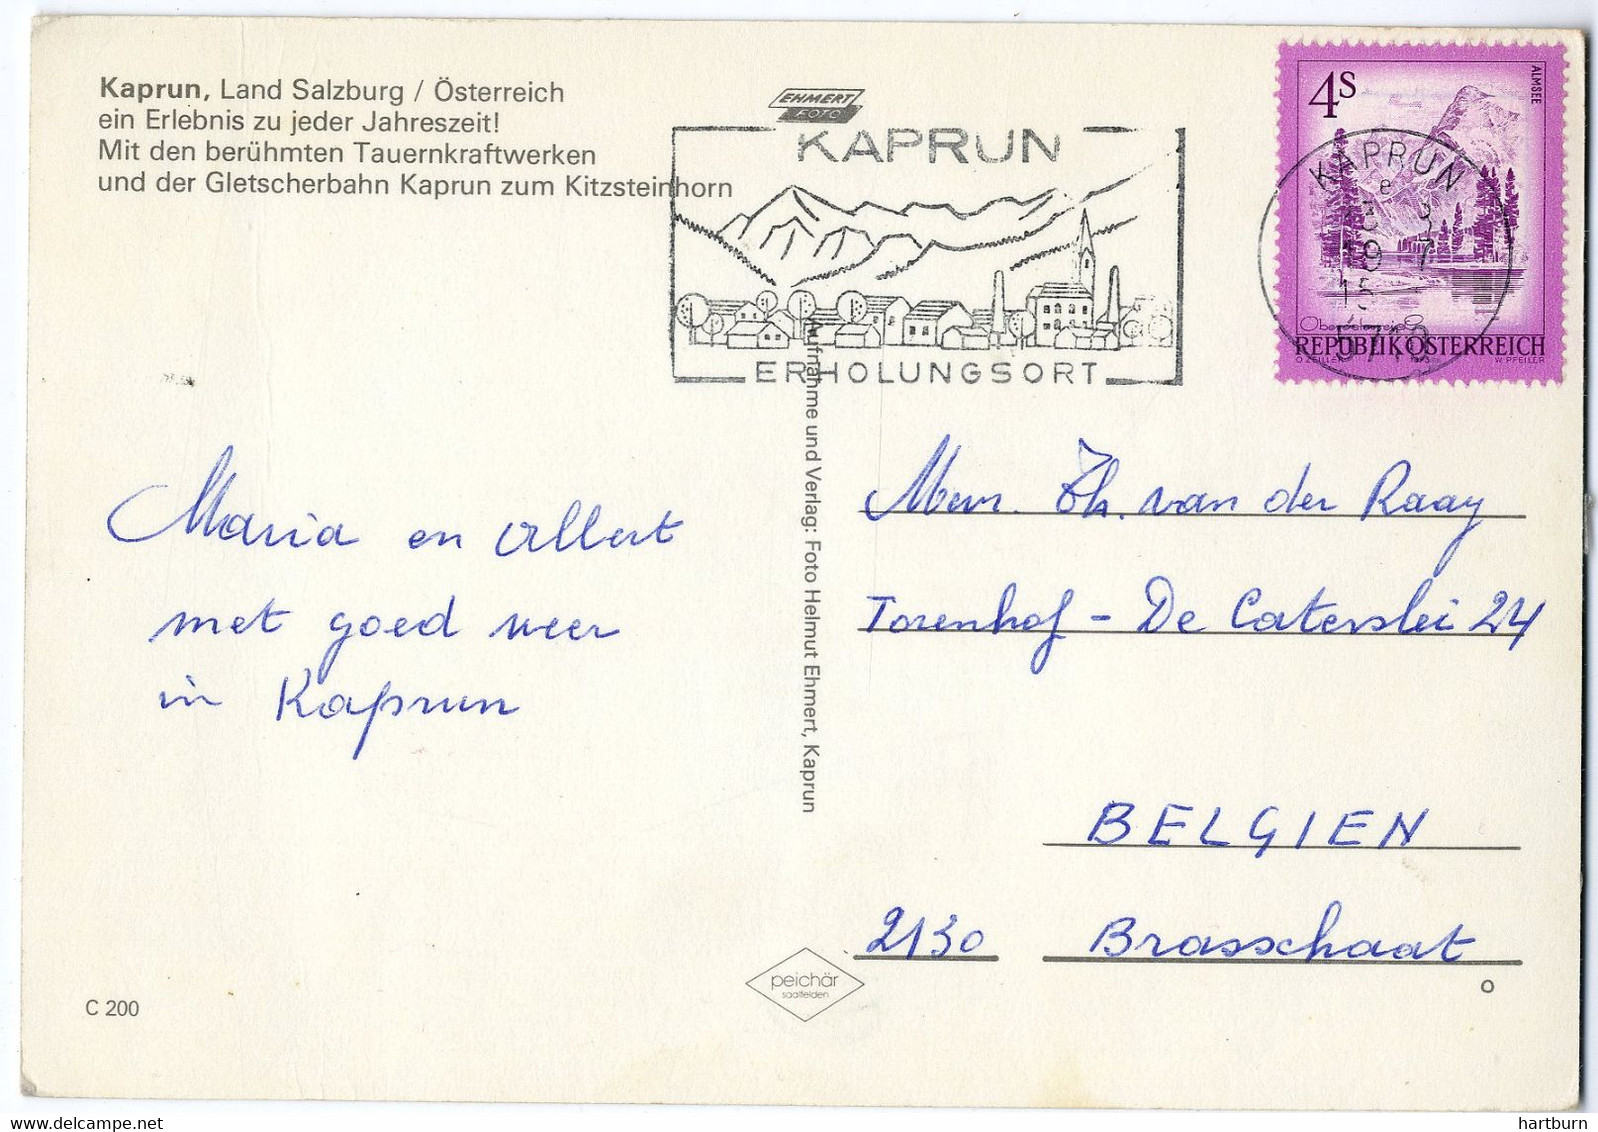 Kaprun, Land Salzburg / Österreich
ein Erlebnis zu jeder Jahreszeit!
Mit den berühmten Tauernkraftwerken
und der Gletscherbahn Kaprun zum Kitzsteinhorn
EHMERT
FOTO
KAPRUN
ERHOLUNGSORT
4S
ALMSEE
REPUBLIK ÖSTERREICH
W. PFEILER
KAPRUN
e
5710
Maria en Albert
met goed weer
in Kaprun
Aufnahme und Verlag: Foto Helmut Ehmert, Kaprun
Mevr. Th. van der Raay
Torenhof - De Caterslei 24
BELGIEN
2130 Brasschaat
peichär
saalfelden
C 200
delcampe.net
hartburn